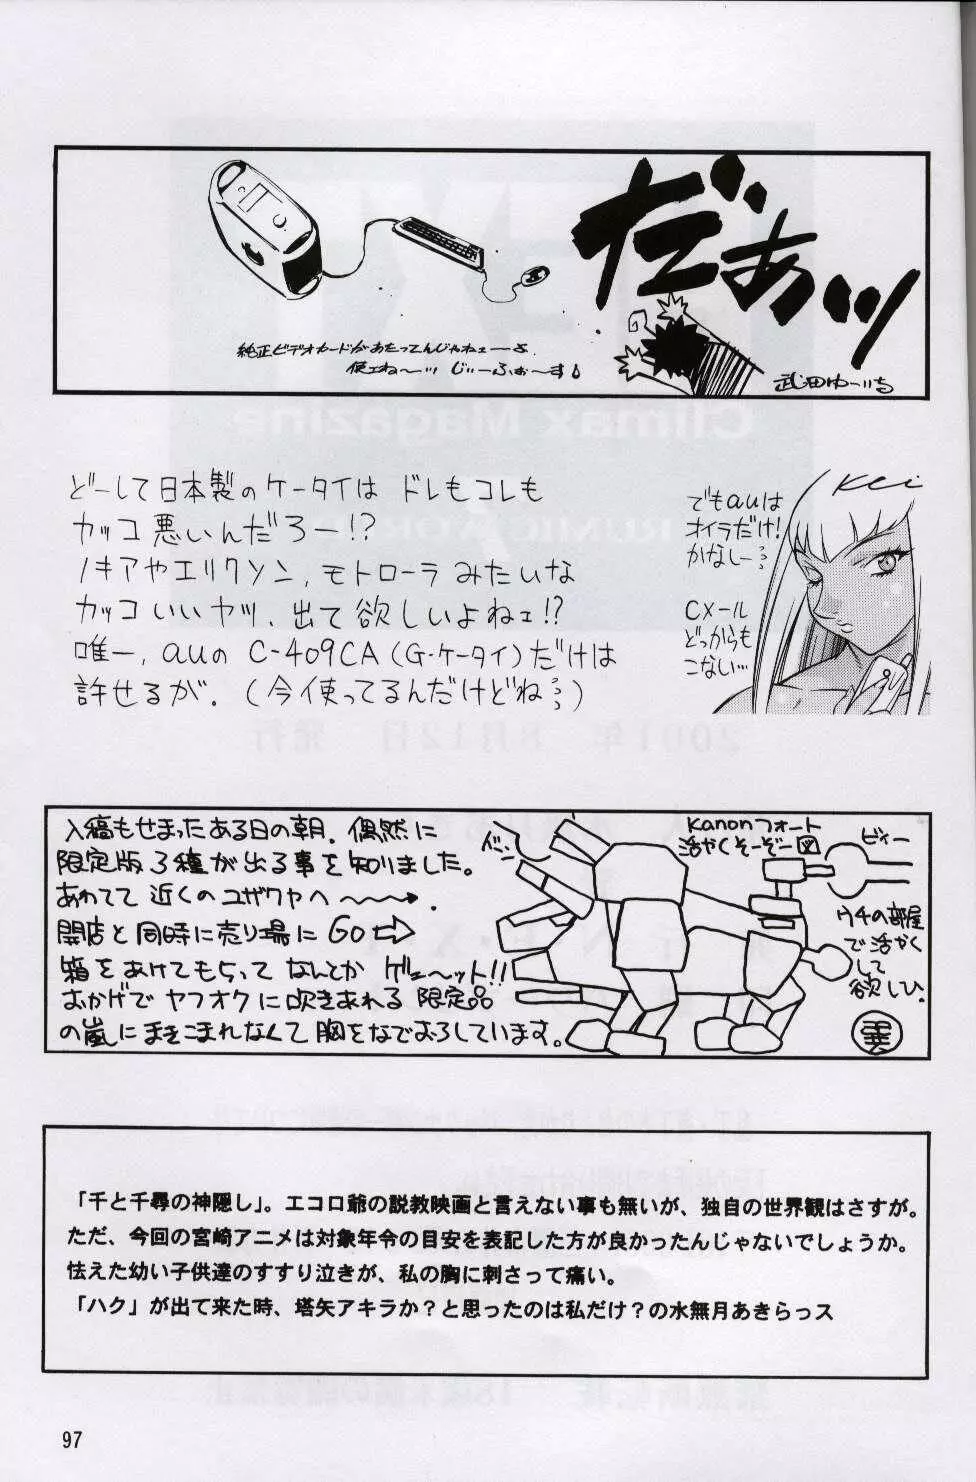 だあッ
純正ビデオカードがあたってんじゃねェーよ
使エね〜ッ じぃーふぉ〜す
武田ゆーいち
どーして日本製のケータイは ドレもコレも
カッコ悪いんだろー!?
ノキアやエリクソン, モトローラ みたいな
カッコいいヤツ、出て欲しいよねェ!?
唯一, auの C-409CA (G・ケータイ)だけは
許せるが. (今使ってるんだけどね…)
でもauは
オイラだけ!
かなしー…
Cメール
どっからも
こない…
Kei
入稿もせまったある日の朝. 偶然に
限定版3種が出る事を知りました。
あわてて 近くのユザワヤへ
開店と同時に売り場に GO⇨
箱をあけてもらって なんとか ゲェ〜ット!!
おかげで ヤフオクに吹きあれる 限定品
の嵐にまきこまれなくて 胸をなでおろしています。
Kanonフォート
活やくそーぞー図
ビィー
ウチの部屋
で活やく
して
欲しひ.
「千と千尋の神隠し」。エコロ爺の説教映画と言えない事も無いが、独自の世界観はさすが。
ただ、今回の宮崎アニメは対象年令の目安を表記した方が良かったんじゃないでしょうか。
怯えた幼い子供達のすすり泣きが、私の胸に刺さって痛い。
「ハク」が出て来た時、塔矢アキラか?と思ったのは私だけ?の水無月あきらっス
97